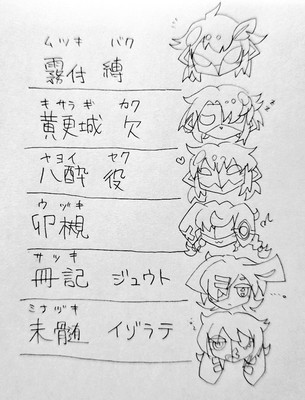 ムツキ バク
霧付 縛
キサラギ カク
黄更城 欠
ヤヨイ ヤク
八酔 役
ウヅキ
卯槻
サツキ
冊記 ジュウト
ミナヅキ
未髄 イゾラテ